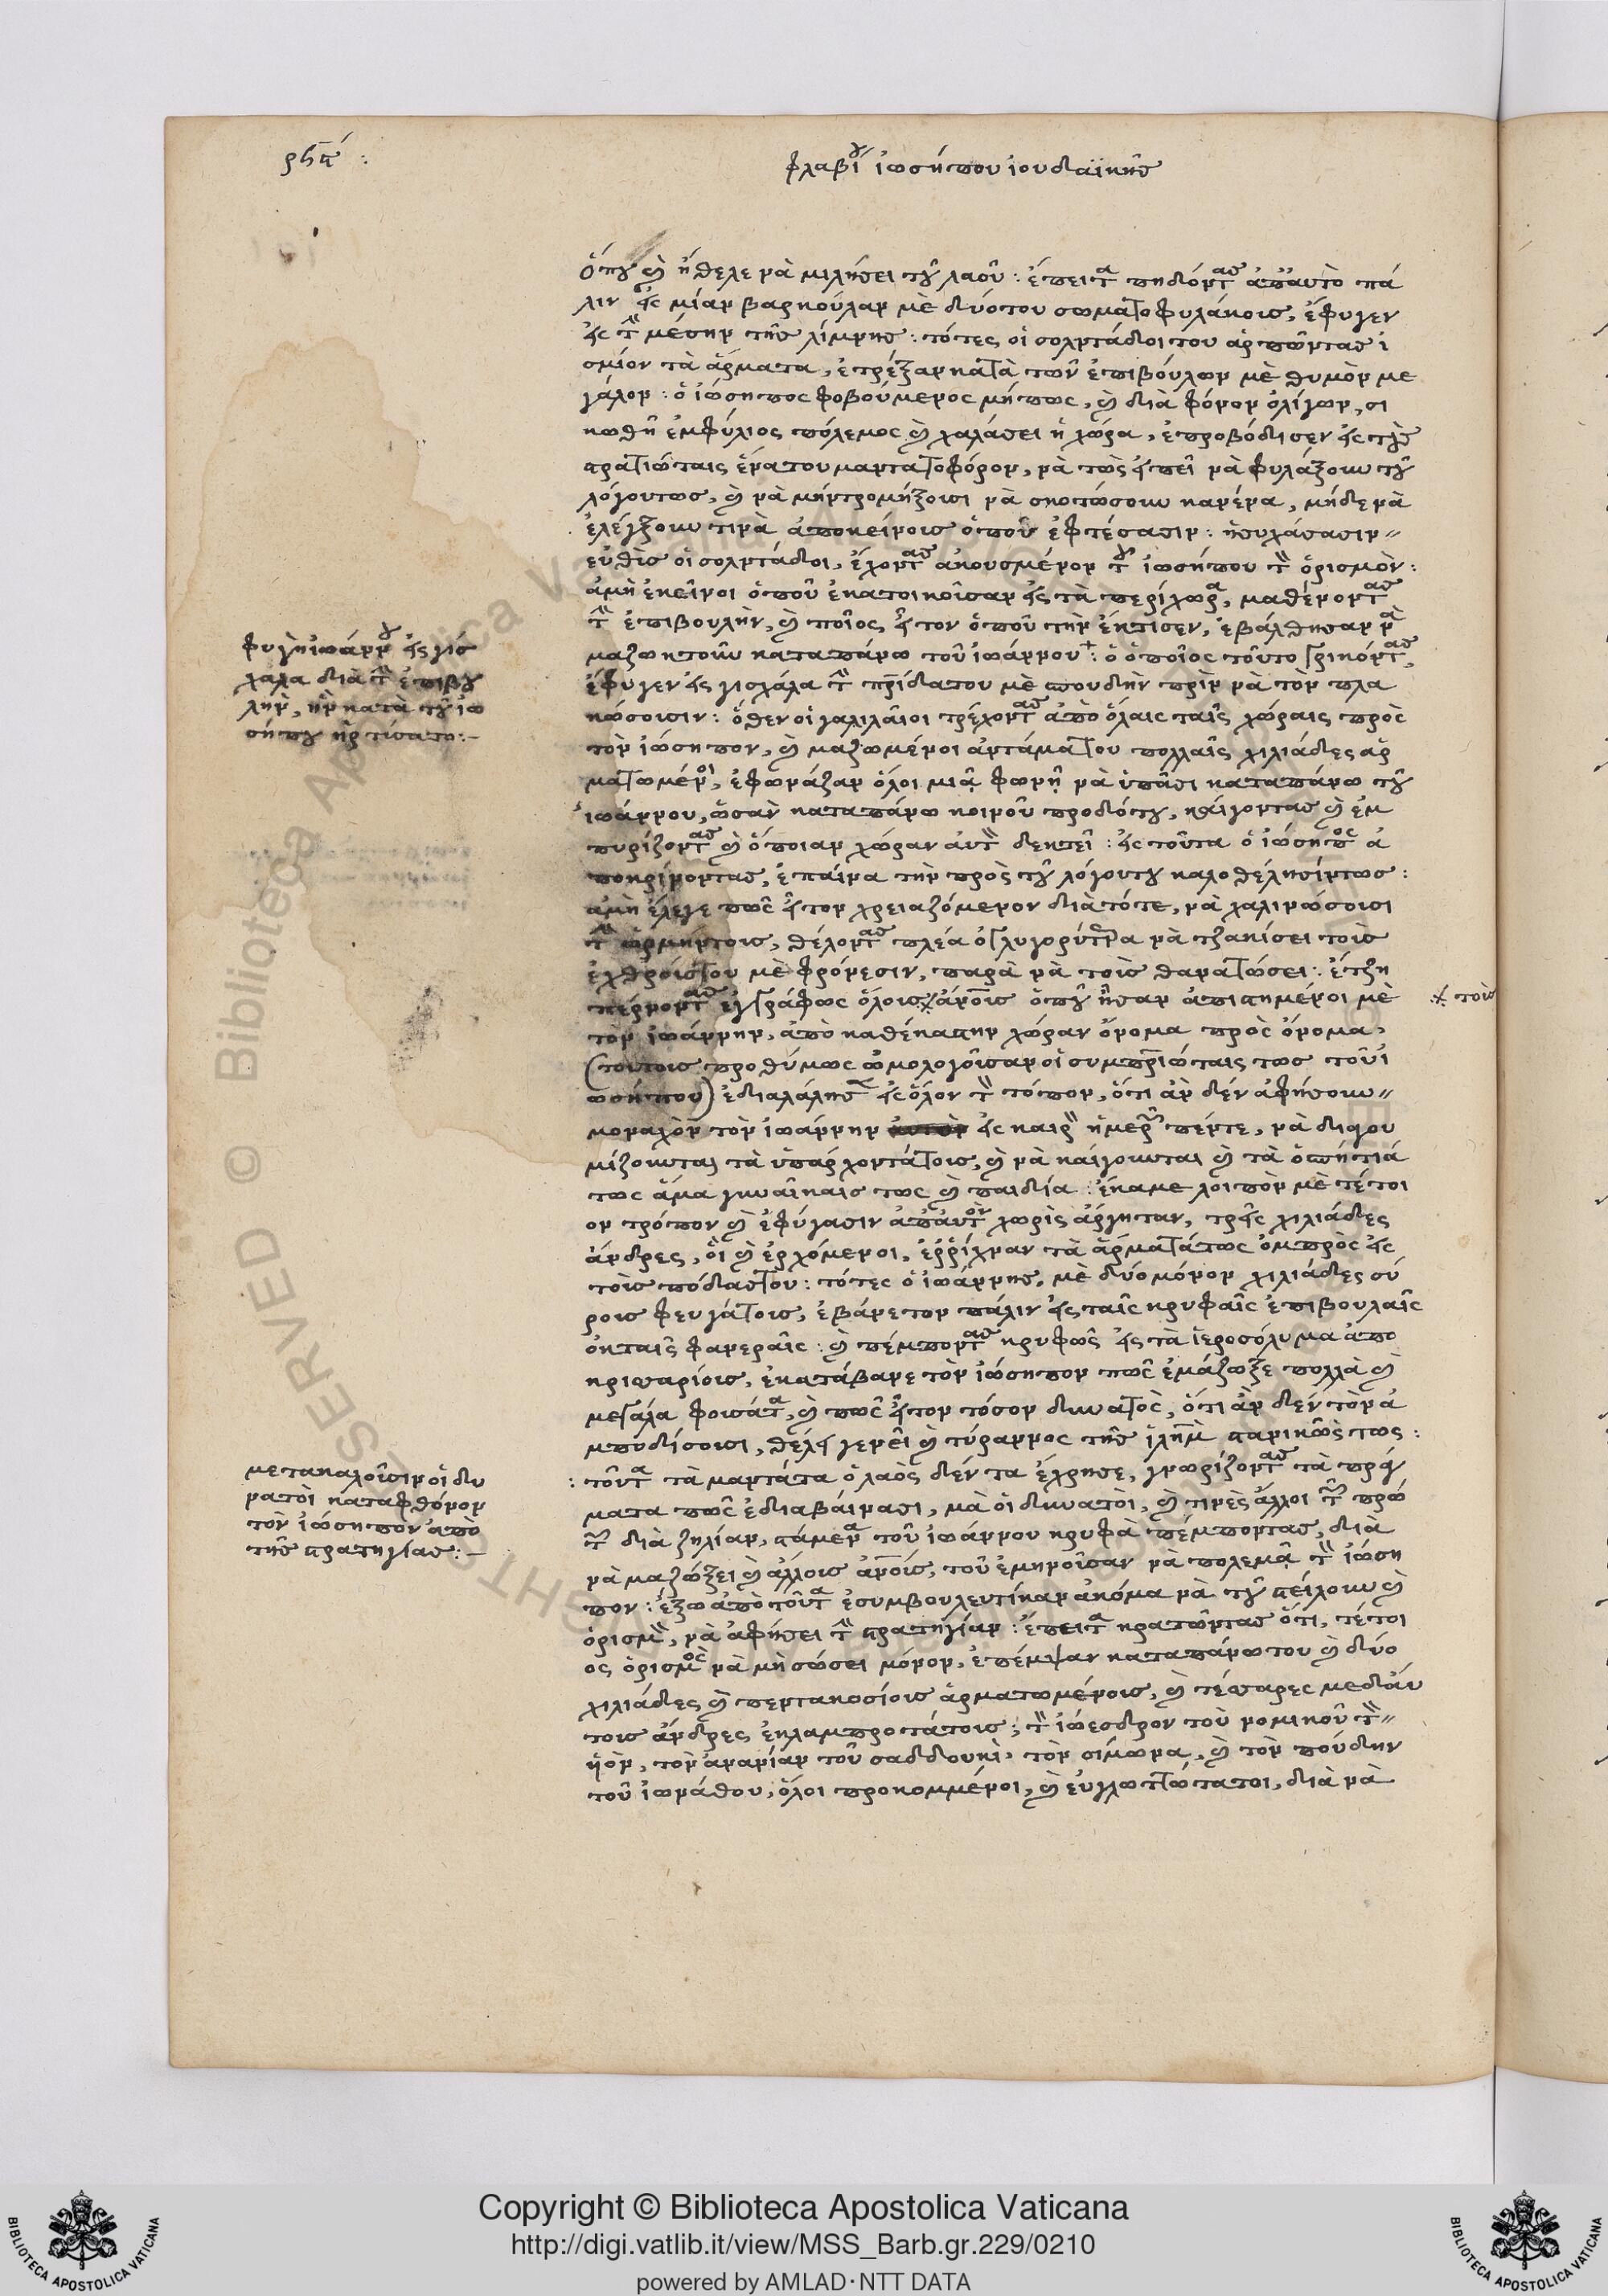 φλαβίου ἰωσήπου ἰουδαϊκῆς
ὅπου καὶ ἤθελε νὰ μιλήσει τοῦ λαοῦ: ἔπειτα πηδόντας ἀπαυτὸ πά
λιν εἰς μίαν βαρκούλαν μὲ δύο του σωματοφυλάκοις, ἔφυγεν
εἰς τὴν μέσην τῆς λίμνης: τότες οἱ σολντάδοι του ἁρπῶντας ἰ
σμίον τὰ ἄρματα, ἐτρέξαν κατὰ τῶν ἐπιβούλων μὲ θυμὸν με
γάλον: ὁ ἰώσηπος φοβούμενος μήπως, καὶ διὰ φόνον ὀλίγων, σι
κωθῆ ἐμφύλιος πόλεμος καὶ χαλάσει ἡ χώρα, ἐπροβόδισεν εἰς τοὺς
στρατιώταις ἕνα του μαντατοφόρον, νὰ τῶς εἰπεῖ νὰ φυλάξουν τοῦ
λόγου τως, καὶ νὰ μὴν τρομήξουσι νὰ σκοτώσουν κανένα, μήδε νὰ
ἐλέγξουν τινὰ ἀποκείνοις ὁποῦ ἐφτέσασιν: ἡσυχάσασιν
εὐθὶς οἱ σολντάδοι, ἔχοντας ἀκουσμένον τοῦ ἰωσήπου τὸν ὁρισμὸν:
ἀμὴ ἐκεῖνοι ὁποῦ ἐκατοικοῖσαν εἰς τὰ περίχωρα, μαθένοντας
τὴν ἐπιβουλὴν, καὶ ποῖος εἶτον ὁποῦ τὴν ἔκτισεν, ἐβάλθησαν νὰ
μαζωκτοῦν καταπάνω τοῦ ἰωάννου: ὁ ὁποῖος τοῦτο γρικόντας,
ἔφυγεν εἰς γισχάλα τὴν πατρίδα του μὲ σπουδὴν πρὶν νὰ τὸν πλα
κώσουσιν: ὅθεν οἱ γαλιλαῖοι τρέχοντας ἀπὸ ὅλαις ταῖς χώραις πρὸς
τὸν ἰώσηπον, καὶ μαζωμένοι ἀντάμα του πολλαῖς χιλιάδες ἀρ
ματωμένοι, ἐφωνάζαν ὅλοι μιᾷ φωνῇ νὰ ὑπᾶσι καταπάνω τοῦ
ἰωάννου, ὡσὰν καταπάνω κοινοῦ προδότου, καίγοντας καὶ ἐμ
πυρίζοντας καὶ ὅποιαν χώραν αὐτὸν δεκτεῖ: εἰς τοῦτα ὁ ἰώσηπος ἀ
ποκρίνοντας, ἐπαίνα τὴν πρὸς τοῦ λόγου του καλοθέλησίν τως:
ἀμὴ ἔλεγε πῶς εἶτον χρειαζόμενον διὰ τότε, νὰ χαλινώσουσι
τὴν ὁρμήν τοις, θέλοντας πλέα ὀγλυγορύτερα νὰ τζακίσει τοὶς
ἐχθροίς του μὲ φρόνεσιν, παρὰ νὰ τοὶς θανατώσει: ἔτζη
πέρνοντας ἐγγράφως ὅλοις ἀνθρώποις ὁποῦ ἦσαν ἀπιστημένοι μὲ ※ τοὶς
τὸν ἰωάννην, ἀπὸ καθέκαστην χώραν ὄνομα πρὸς ὄνομα,
(τούτοις προθύμως ὡμολογοῖσαν οἱ συμπατριώταις τως τοῦ ἰ
ωσήπου) ἐδιαλάλησε εἰς ὅλον τὸν τόπον, ὅτι ἂν δὲν ἀφήσουν
μοναχὸν τὸν ἰωάννην εἰς καιρὸν ἡμερῶν πέντε, νὰ διαγου
μίζουνται τὰ ὑπάρχοντά τοις, καὶ νὰ καίγουνται καὶ τὰ ὁσπήτιά
τως ἅμα γυναῖκαις τως καὶ παιδία: ἔκαμε λοιπὸν μὲ τέτοι
ον τρόπον καὶ ἐφύγασιν ἀπαυτὸν χωρὶς ἄργηταν, τρεῖς χιλιάδες
ἄνδρες, οἳ καὶ ἐρχόμενοι, ἐῤῥίχναν τὰ ἄρματά τως ὀμπρὸς εἰς
τοὶς πόδας του: τότες ὁ ἰωάννης, μὲ δύο μόνον χιλιάδες σύ
ροις φευγάτοις, ἐβάνετον πάλιν εἰς ταῖς κρυφαῖς ἐπιβουλαῖς
ὀκ ταῖς φανεραῖς: καὶ πέμποντας κρυφῶς εἰς τὰ ἱεροσόλυμα ἀπο
κρισαρίοις, ἐκατάβανε τὸν ἰώσηπον πῶς ἐμάζωξε πολλὰ καὶ
μεγάλα φοισάτα, καὶ πῶς εἶτον τόσον δυνατὸς, ὅτι ἂν δὲν τὸν ἀ
μποδίσουσι, θέλει γενεῖ καὶ τύραννος τῆς ἱλημ στανικῶς τως:
τοῦτα τὰ μαντάτα ὁ λαὸς δέν τα ἔχρησε, γνωρίζοντας τὰ πράγ
ματα πῶς ἐδιαβαίνασι, μὰ οἱ δυνατοὶ, καὶ τινὲς ἄλλοι τῶν πρώ
των διὰ ζηλίαν, στάμενα τοῦ ἰωάννου κρυφὰ πέμποντας, διὰ
νὰ μαζώξει καὶ ἄλλοις ἀνθρώποις, τοῦ ἐμηνοῖσαν νὰ πολεμᾷ τὸν ἰώση
πον: ἔξω ἀπὸ τοῦτα ἐσυμβουλευτίκαν ἀκόμα νὰ τοῦ στείλουν καὶ
ὁρισμὸν, νὰ ἀφήσει τὴν στρατηγίαν: ἔπειτα κρατῶντας ὅτι, τέτοι
ος ὁρισμὸς νὰ μὴ σώσει μόνον, ἐπέμψαν καταπάνω του καὶ δύο
χιλιάδες καὶ πεντακοσίοις ἀρματωμένοις, καὶ τέσσαρες μεδαύ
τοις ἄνδρες ἐκλαμπροτάτοις; τὸν ἰώεσδρον τοῦ νομικοῦ τὸν
ὑιὸν, τὸν ἀνανίαν τοῦ σαδδουκὶ, τὸν σίμωνα, καὶ τὸν πούδην
τοῦ ἰωνάθου, ὅλοι προκομμένοι, καὶ εὐγλωττώτατοι, διὰ νὰ
φυγὴ ἰωάννου εἰς γίσ
χαλα διὰ τὴν ἐπιβου
λὴν, ἣν κατὰ τοῦ ἰω
σήπου ἠρτίσατο:–
μετακαλοῦσιν οἱ δυ
νατοὶ κατὰ φθόνον
τὸν ἰώσηπον ἀπὸ
τῆς στρατηγίας:–
Copyright © Biblioteca Apostolica Vaticana
http://digi.vatlib.it/view/MSS_Barb.gr.229/0210
powered by AMLAD·NTT DATA